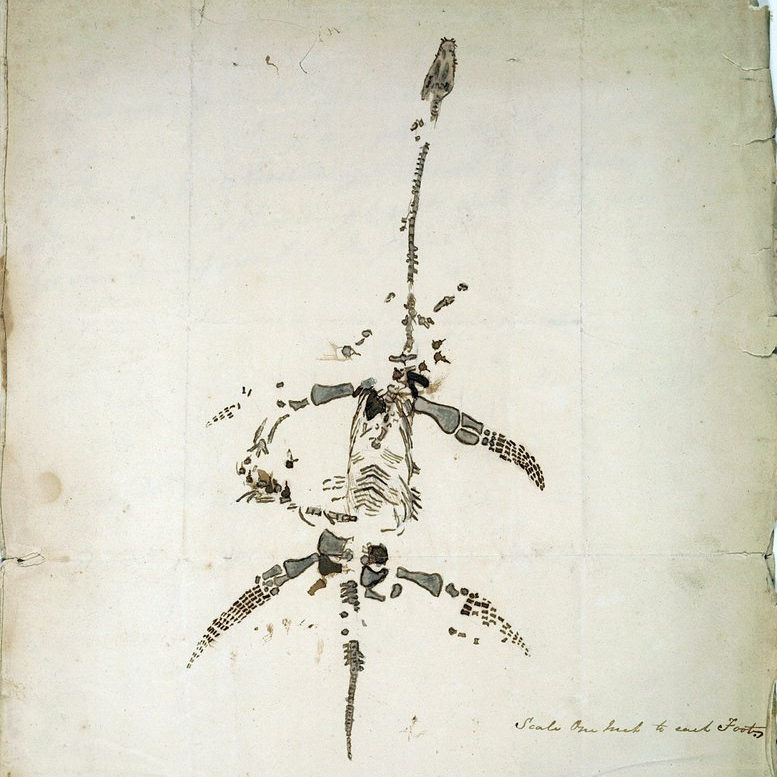 Scale One Inch to each Foot